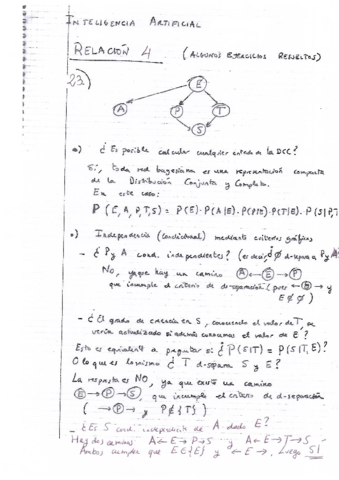 INTELIGENCIA ARTIFICIAL
RELACIÓN 4 (ALGUNOS EJERCICIOS RESUELTOS)
23)
E
A P T
S
a) ¿Es posible calcular cualquier entrada de la DCC?
Sí, toda red bayesiana es una representación compacta
de la Distribución Conjunta y Completa.
En este caso:
P(E,A,P,T,S) = P(E)·P(A|E)·P(P|E)·P(T|E)·P(S|P,T
•) Independencia (condicional) mediante criterios gráficos
- ¿P y A cond. independientes? (es decir, ¿∅ d-separa P y A
No, ya que hay un camino A ← E → P
que incumple el criterio de d-separación (pues ← → y
E ∉ ∅)
- ¿El grado de creencia en S, conociendo el valor de T se
vería actualizado si además conocemos el valor de E?
Esto es equivalente a preguntar si ¿P(S|T) = P(S|T,E)?
O lo que es lo mismo ¿T d-separa S y E?
La respuesta es NO, ya que existe un camino
E → P → S, que incumple el criterio de d-separación
( → P → y P ∉ {T})
- ¿Es S cond. independiente de A dada E?
Hay dos caminos A ← E → P → S y A ← E → T → S
Ambos cumplen que E ∈ {E} y ← E →, luego SÍ